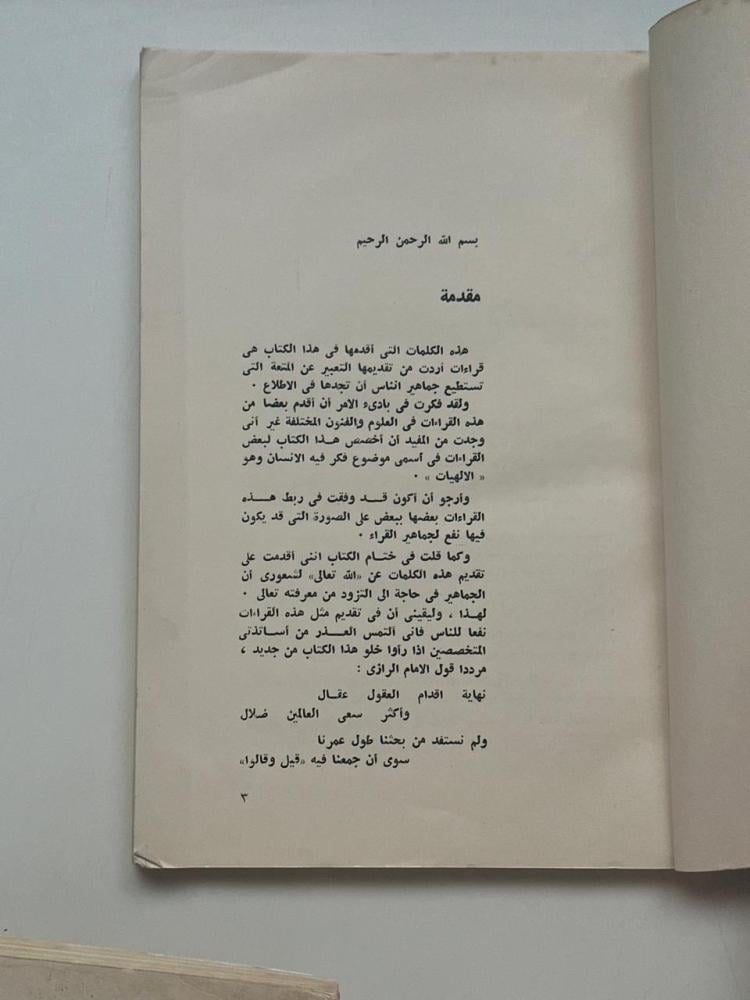 بسم الله الرحمن الرحيم
مقدمة
هذه الكلمات التى أقدمها فى هذا الكتاب هى
قراءات أردت من تقديمها التعبير عن المتعة التى
تستطيع جماهير الناس أن تجدها فى الاطلاع ٠
ولقد فكرت فى بادىء الامر أن أقدم بعضا من
هذه القراءات فى العلوم والفنون المختلفة غير أنى
وجدت من المفيد أن أخصص هــذا الكتاب لبعض
القراءات فى أسمى موضوع فكر فيه الانسان وهو
« الالهيات » ٠
وأرجو أن أكون قــد وفقت فى ربط هــذه
القراءات بعضها ببعض على الصورة التى قد يكون
فيها نفع لجماهير القراء ٠
وكما قلت فى ختـام الكتاب اننى أقدمت على
تقديم هذه الكلمات عن «الله تعالى» لشعورى أن
الجماهير فى حاجة الى التزود من معرفته تعالى ٠
لهـذا ، وليقينى أن فى تقديم مثل هذه القراءات
نفعا للناس فانى ألتمس العــذر من أسـاتذتى
المتخصصين اذا رأوا خلو هذا الكتاب من جديد ،
مرددا قول الامام الرازى :
نهاية اقدام العقول عقـال
وأكثر سعى العالمين ضلال
ولم نستفد من بحثنا طول عمرنا
سوى أن جمعنا فيه «قيل وقالوا»
٣